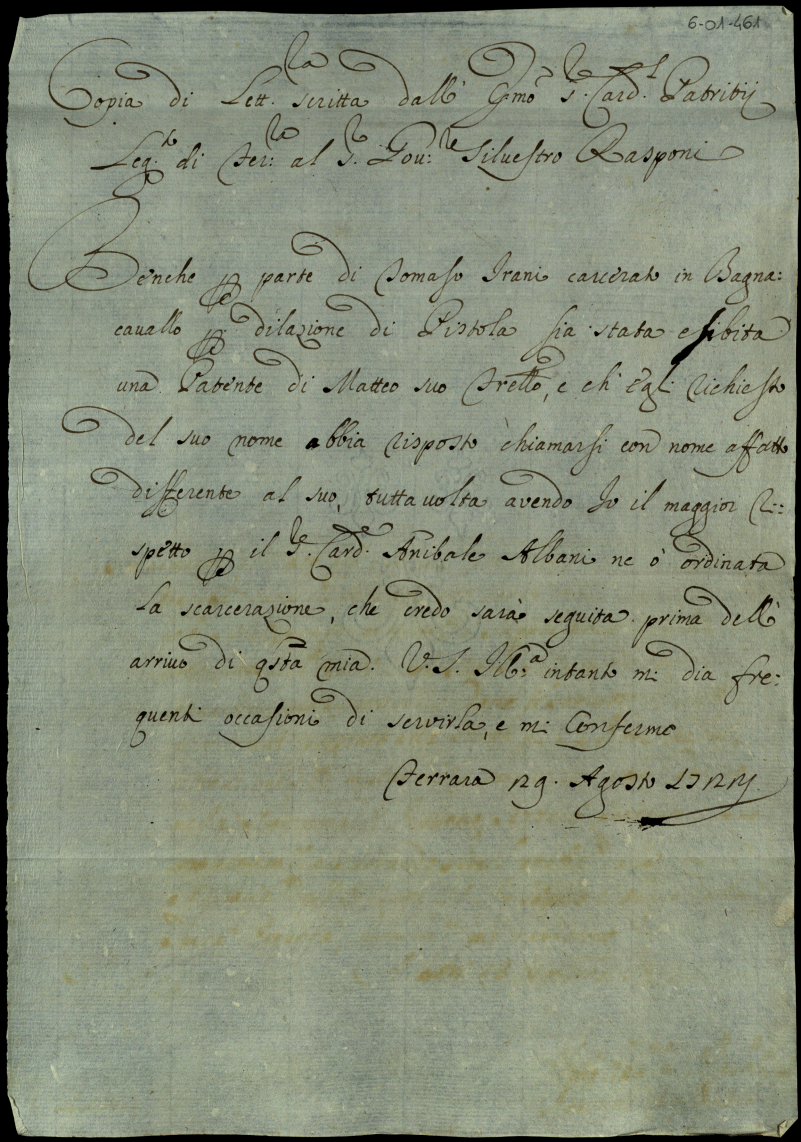 6-01-461
Copia di Lett.ra scritta dall' Emo S.r Card.l Patritij
Leg.to di Fer:ra al S.r Gov:re Silvestro Rasponi
Benche p parte di Tomaso Irani carcerato in Bagna:
cavallo p dilazione di Pistola sia stata esibita
una Patente di Matteo suo Frello, e ch' egli richiesto
del suo nome abbia risposto chiamarsi con nome affatto
differente al suo, tuttavolta avendo Io il maggior ri:
spetto p il S.r Card.le Anibale Albani ne ò ordinata
la scarcerazione, che credo sarà seguita prima dell'
arrivo di qsta mia. V.S. Ill:a intanto mi dia fre:
quenti occasioni di servirla, e mi confermo
Ferrara 29. Agosto